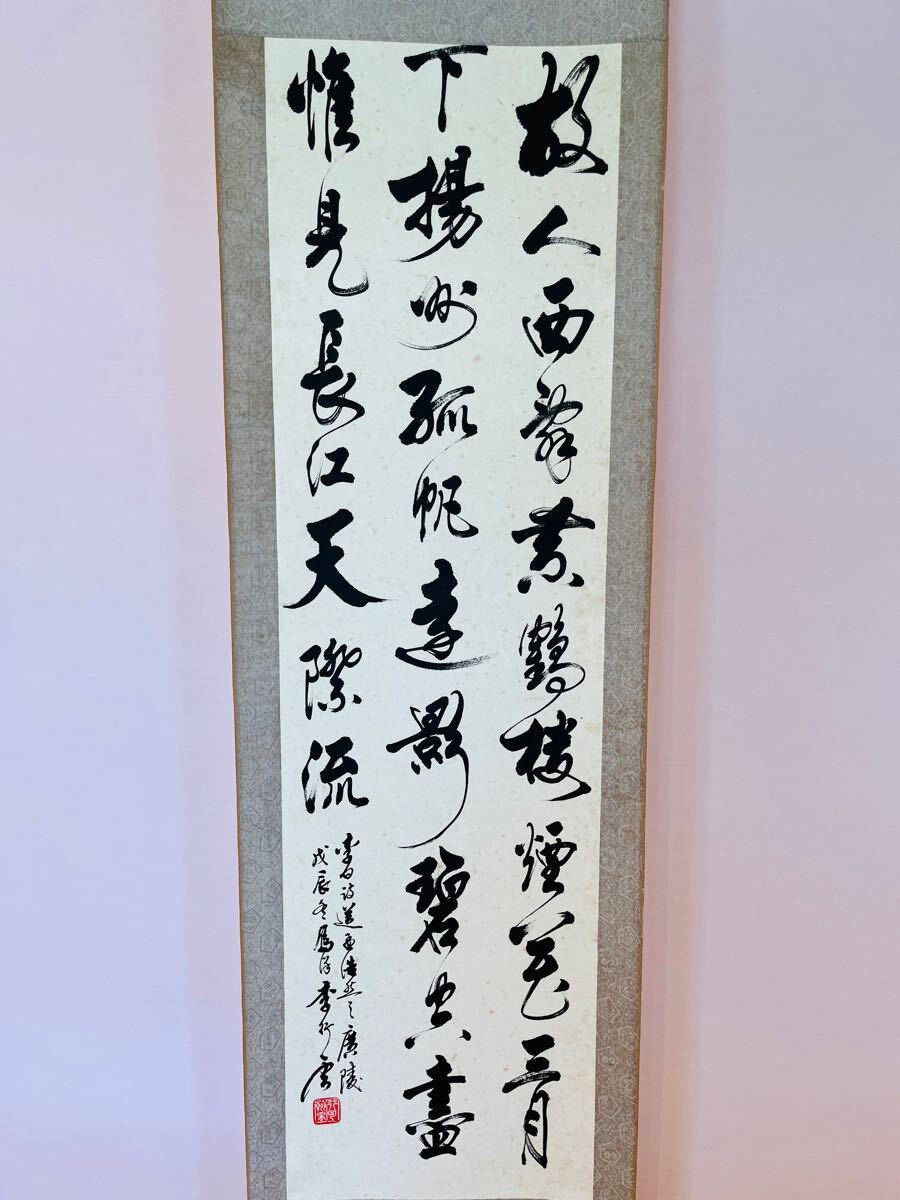 故人西辭黃鶴樓煙花三月
下揚州孤帆遠影碧空盡
惟見長江天際流
李白詩送孟浩然之廣陵
戊辰冬 李行雲